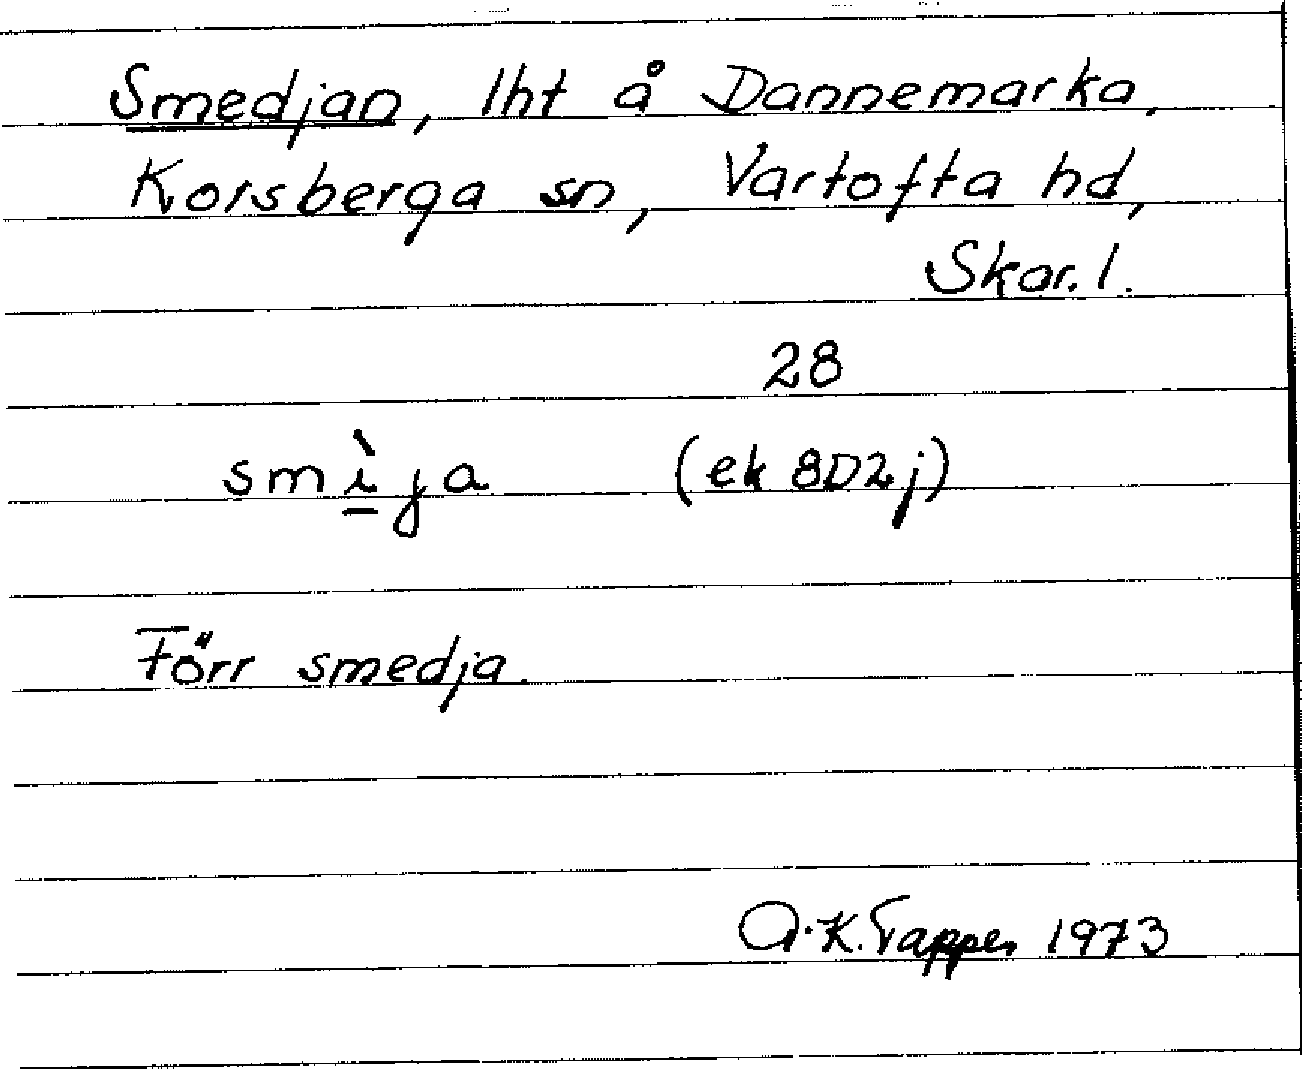 Smedjan, lht å Dannemarka,
Korsberga sn, Vartofta hd,
Skar. l.
28
smì̲ja (ek 8D2j)
Förr smedja.
A.K. Tapper 1973